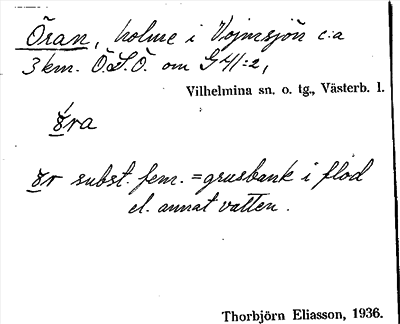 Öran, holme i Vojmsjön c:a
3 km. Ö.S.Ö. om G 41:2,
Vilhelmina sn. o. tg., Västerb. l.
subst. fem. = grusbank i flod
el. annat vatten.
Thorbjörn Eliasson, 1936.